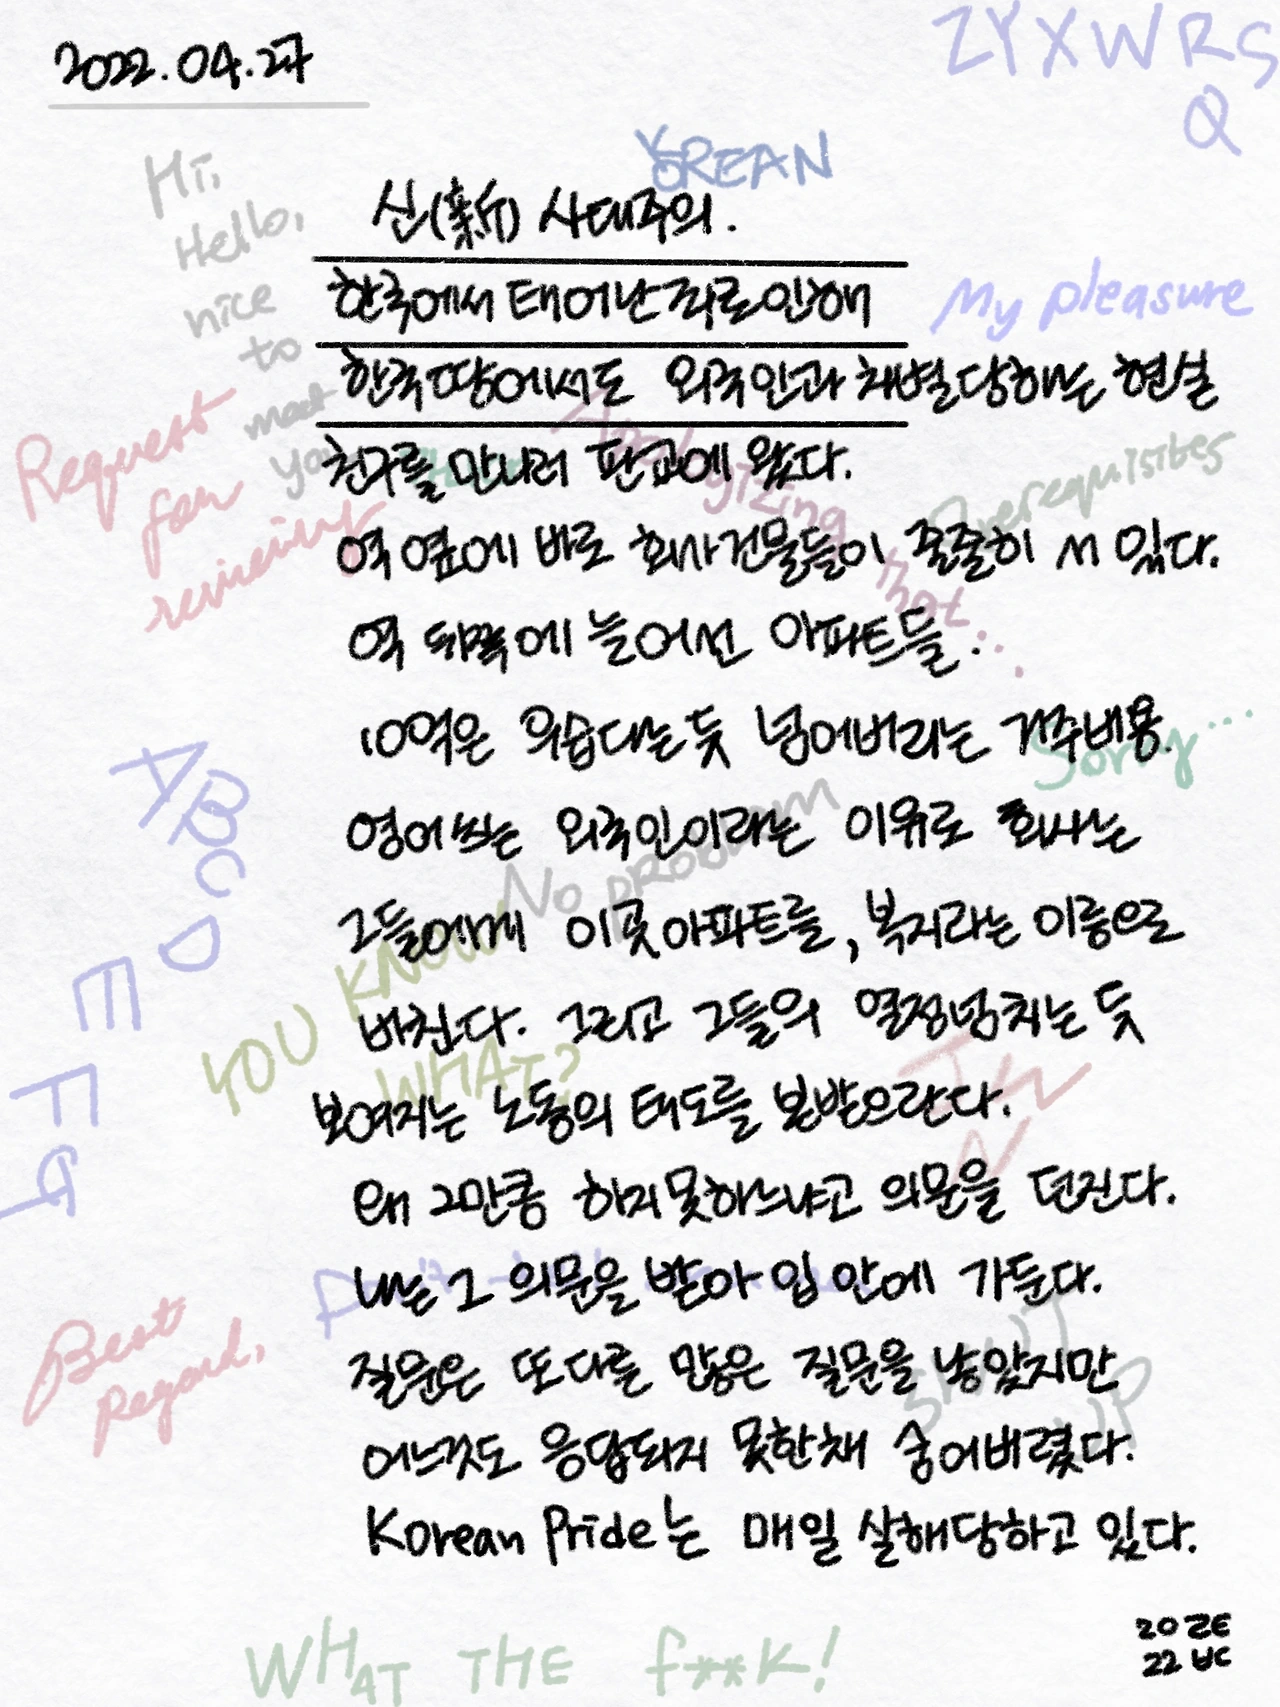 2022.04.27
ZYXWRS
Q
KOREAN
Hi,
Hello,
nice
to
meet
you
신(新) 사대주의.
한국에서 태어난 죄로인해
My pleasure
한국땅에서도 외국인과 차별당하는 현실
Request
for
reviewing
친구를 만나러 판교에 왔다.
Apologizing
that...
Prerequisites
역 옆에 바로 회사건물들이 줄줄히 서 있다.
역 뒤쪽에 늘어선 아파트들.
10억은 우습다는듯 넘어버리는 거주비용.
Sorry...
ABCDEFG
영어쓰는 외국인이라는 이유로 회사는
No problem
그들에게 이곳아파트를, 복지라는 이름으로
YOU KNOW
WHAT?
바친다. 그리고 그들의 열정넘치는 듯
보여지는 노동의 태도를 본받으란다.
왜 그만큼 하지못하느냐고 의문을 던진다.
나는 그 의문을 받아 입 안에 가둔다.
Best
Regard,
질문은 또다른 많은 질문을 낳았지만
SHUT
UP
어느것도 응답되지 못한채 숨어버렸다.
Korean Pride는 매일 살해당하고 있다.
WHAT THE f**K!
20 ZE
22 UC